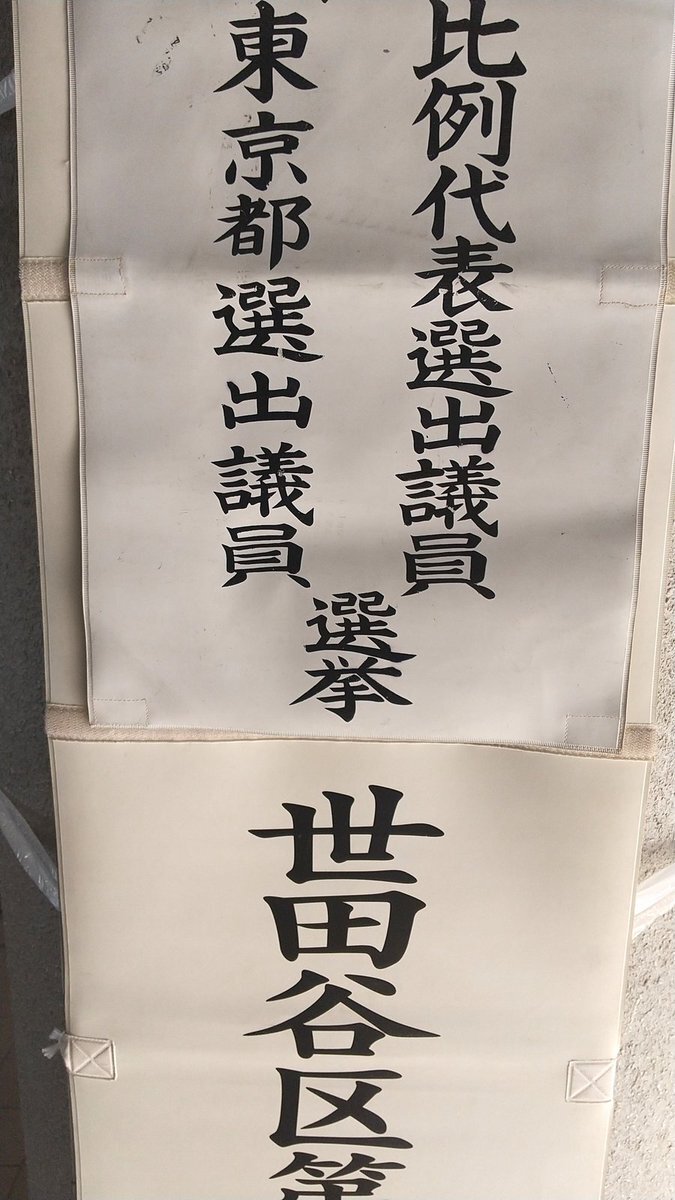 比例代表選出議員
東京都選出議員
選挙
世田谷区第